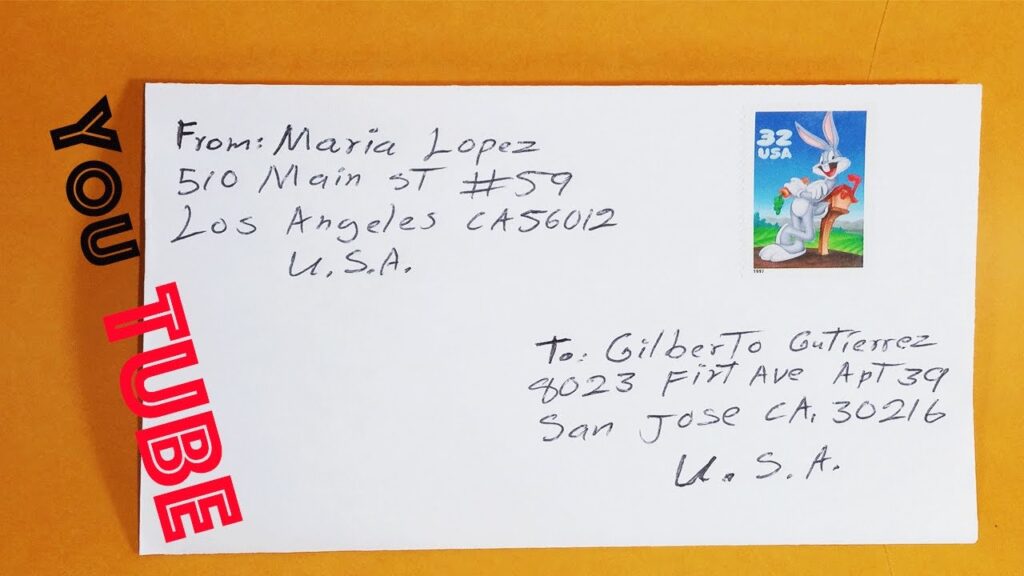 YOU
TUBE
From: Maria Lopez
510 Main ST #59
Los Angeles CA 56012
U.S.A.
32
USA
1997
To: Gilberto Gutierrez
8023 Firt Ave Apt 39
San Jose CA, 30216
U.S.A.